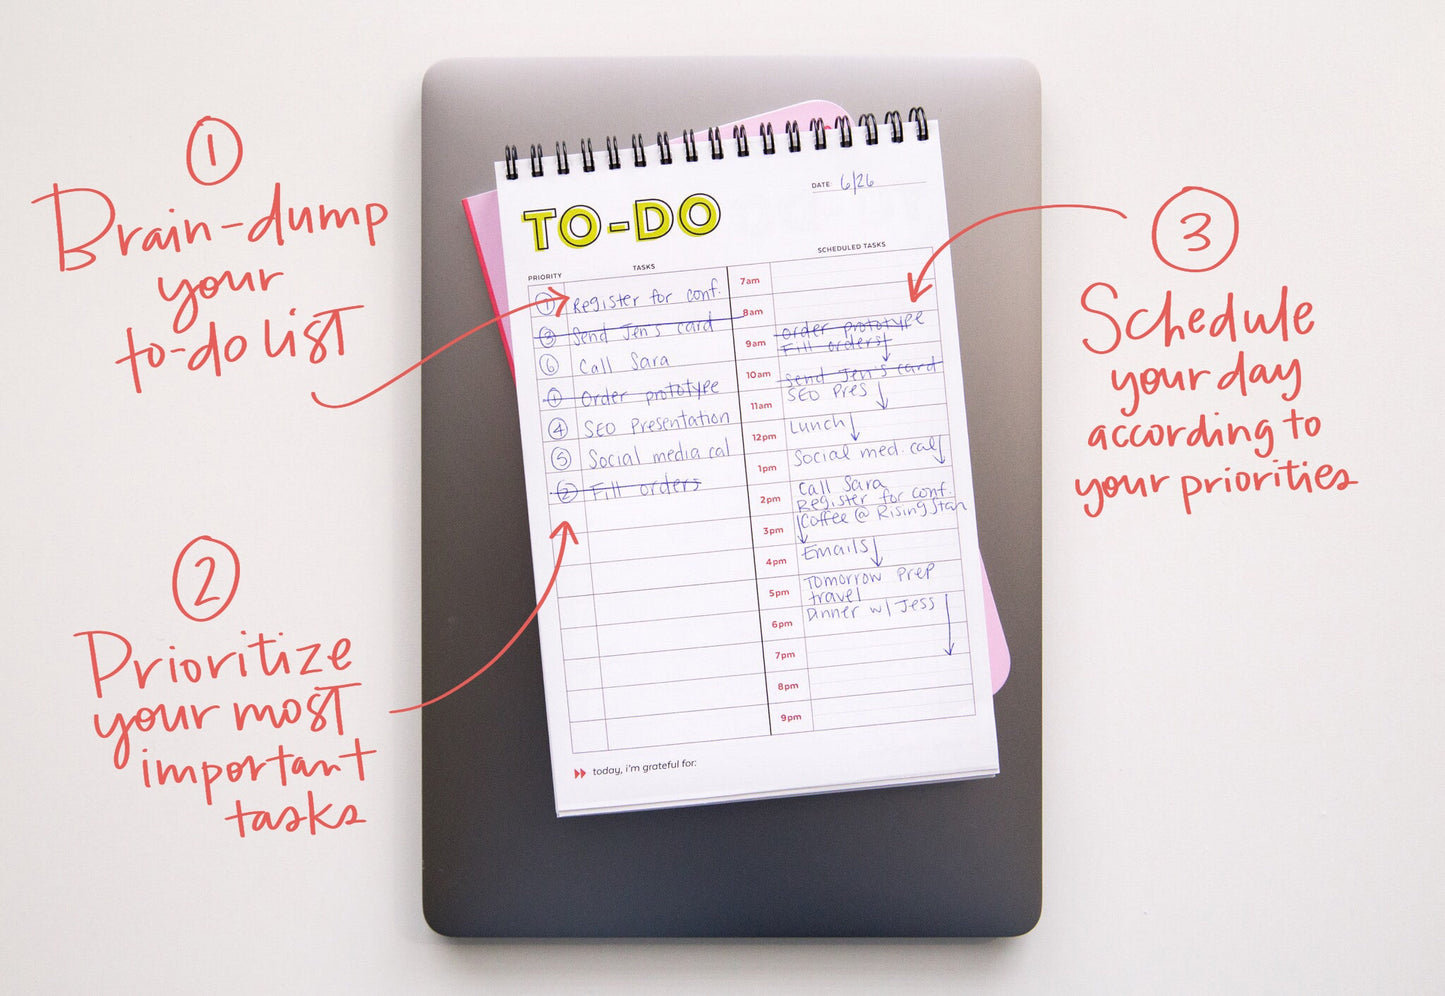 1
Brain-dump
your
to-do list
2
Prioritize
your most
important
tasks
3
Schedule
your day
according to
your priorities
TO-DO
DATE 6/26
PRIORITY TASKS
1 Register for conf.
3 Send Jen's card
6 Call Sara
1 Order prototype
4 SEO Presentation
5 Social media cal
2 Fill orders
SCHEDULED TASKS
7am
8am
9am Order prototype
Fill orders
10am Send Jen's card
SEO Pres
11am
12pm Lunch
1pm Social med. cal
2pm Call Sara
Register for conf.
3pm Coffee @ Rising Star
4pm Emails
5pm Tomorrow Prep
travel
6pm Dinner w/ Jess
7pm
8pm
9pm
today, i'm grateful for: